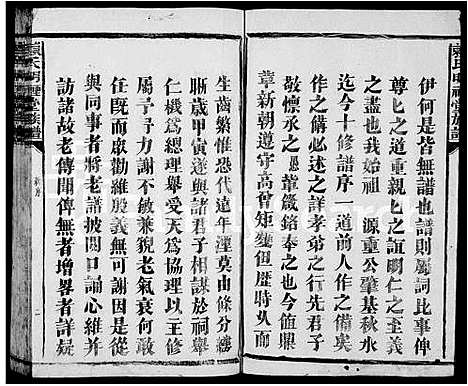 伊何是皆無譜也譜則屬詞比事俾
尊卑之道重親仁之誼明仁之至義
之盡也我始祖 源重公肇基秋水
堂今十修譜序一道前人作之備矣
作之備必述之詳孝弟之行先君子
之彰彰
輩箴銘奉之也今值鼎
革新朝遵守高曾矩矱但歷時久而
生齒繁惟恐代遠年湮莫由條分縷
晰歲甲寅遂與諸君子相謀於祠舉
仁機為總理舉受天為協理以王修
屬予予力謝不敏兼貌老氣衰何敢
任既而敢勸維殷義無可謝因是從
與同事者將老譜披閱口誦心維并
訪諸故老傳聞俾無者增畧者詳疑